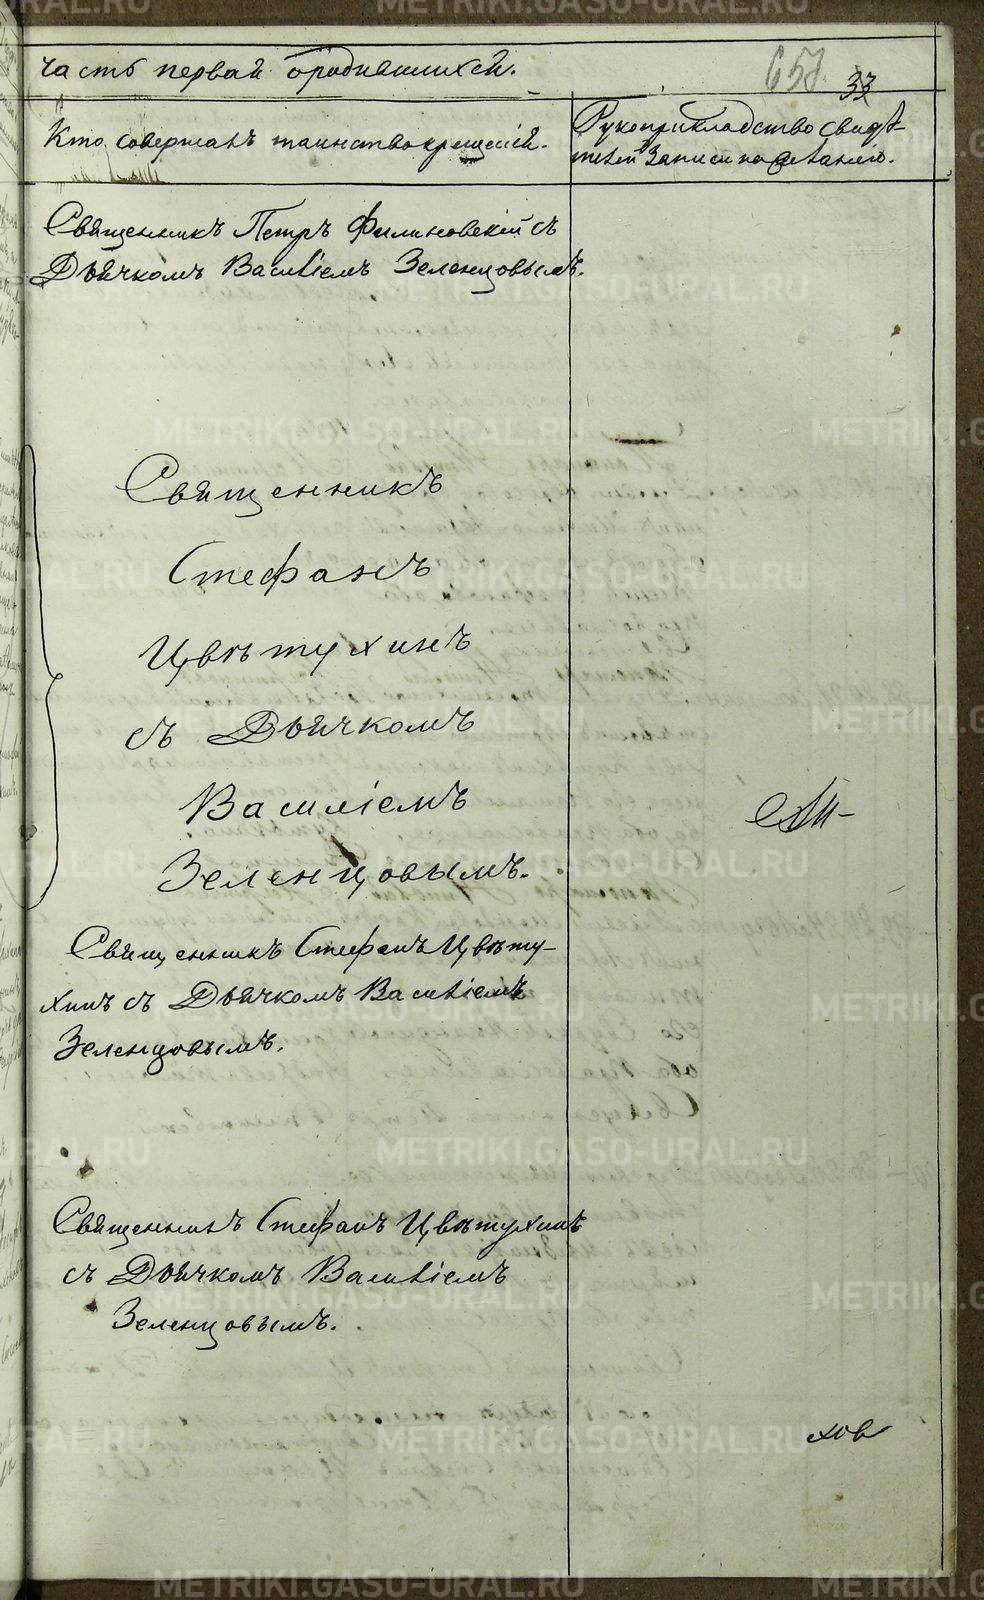 часть первая ородившихся.
657 33
Кто совершалъ таинство крещенiй.
Рукоприкладство свидѣ-
телей записи по желанiю.
Священникъ Петръ Филиновскiй съ
Дьячкомъ Василiемъ Зеленцовымъ.
Священникъ
Стефанъ
Цвѣтухинъ
съ Дьячкомъ
Василiемъ
Зеленцовымъ.
Священникъ Стефанъ Цвѣту-
хинъ съ Дьячкомъ Василiемъ
Зеленцовымъ.
Священникъ Стефанъ Цвѣтухинъ
съ Дьячкомъ Василiемъ
Зеленцовымъ.
ховъ
METRIKI.GASO-URAL.RU